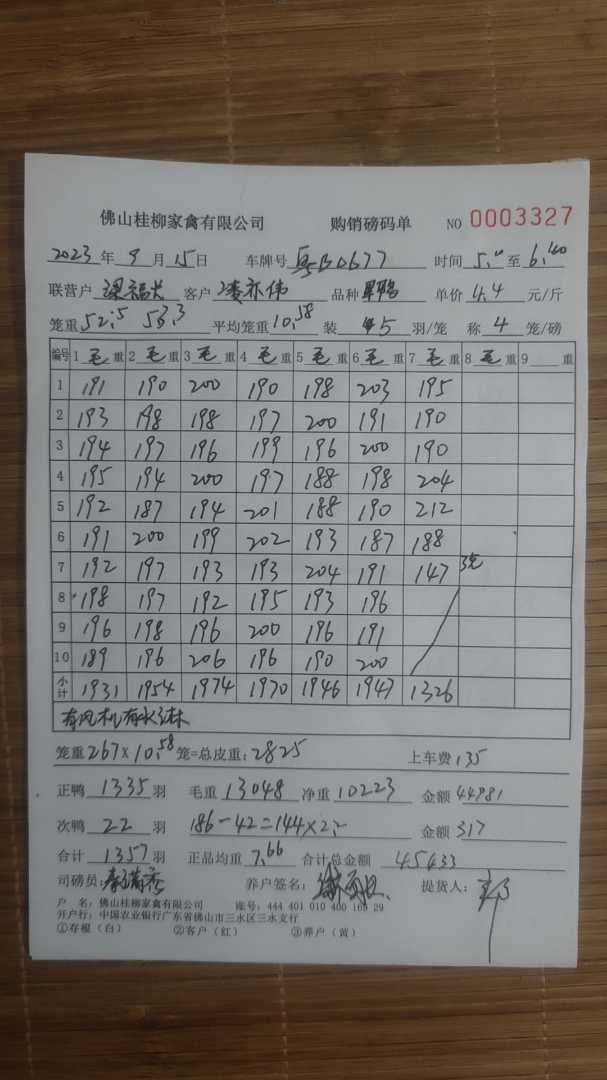 佛山桂柳家禽有限公司 购销磅码单 NO 0003327
2023年9月15日 车牌号 粤BD677 时间 5:00至6:40
联营户 客户 凌亦伟 品种 单价 4.4 元/斤
笼重 52.5 53.3 平均笼重 10.58 装 5 羽/笼 称 4 笼/磅
编号 1毛重 2毛重 3毛重 4毛重 5毛重 6毛重 7毛重 8毛重 9 重
1 191 190 200 190 198 203 195
2 193 198 198 197 200 191 190
3 194 197 196 199 196 200 190
4 195 194 200 197 188 198 204
5 192 187 194 201 188 190 212
6 191 200 199 202 193 187 188
7 192 197 193 193 204 191 147 3笼
8 198 197 192 195 193 196
9 196 198 196 200 196 191
10 189 196 206 196 190 200
小计 1931 1954 1974 1970 1946 1947 1326
有风机有水淋
笼重 267×10.58 笼=总皮重:2825 上车费 135
正鸭 1335 羽 毛重 13048 净重 10223 金额 44981
次鸭 22 羽 186-42=144×2.2 金额 317
合计 1357 羽 正品均重 7.66 合计总金额 45433
司磅员: 养户签名: 提货人:
户 名:佛山桂柳家禽有限公司 账号:444 401 010 400 165 29
开户行:中国农业银行广东省佛山市三水区三水支行
①存根(白) ②客户(红) ③养户(黄)